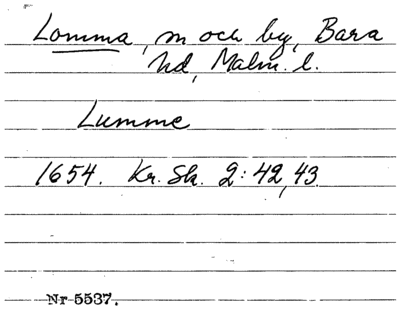 Lomma, sn och by, Bara
hd, Malm. l.
Lumme
1654. Kr. Sk. 2: 42, 43
Nr 5537.